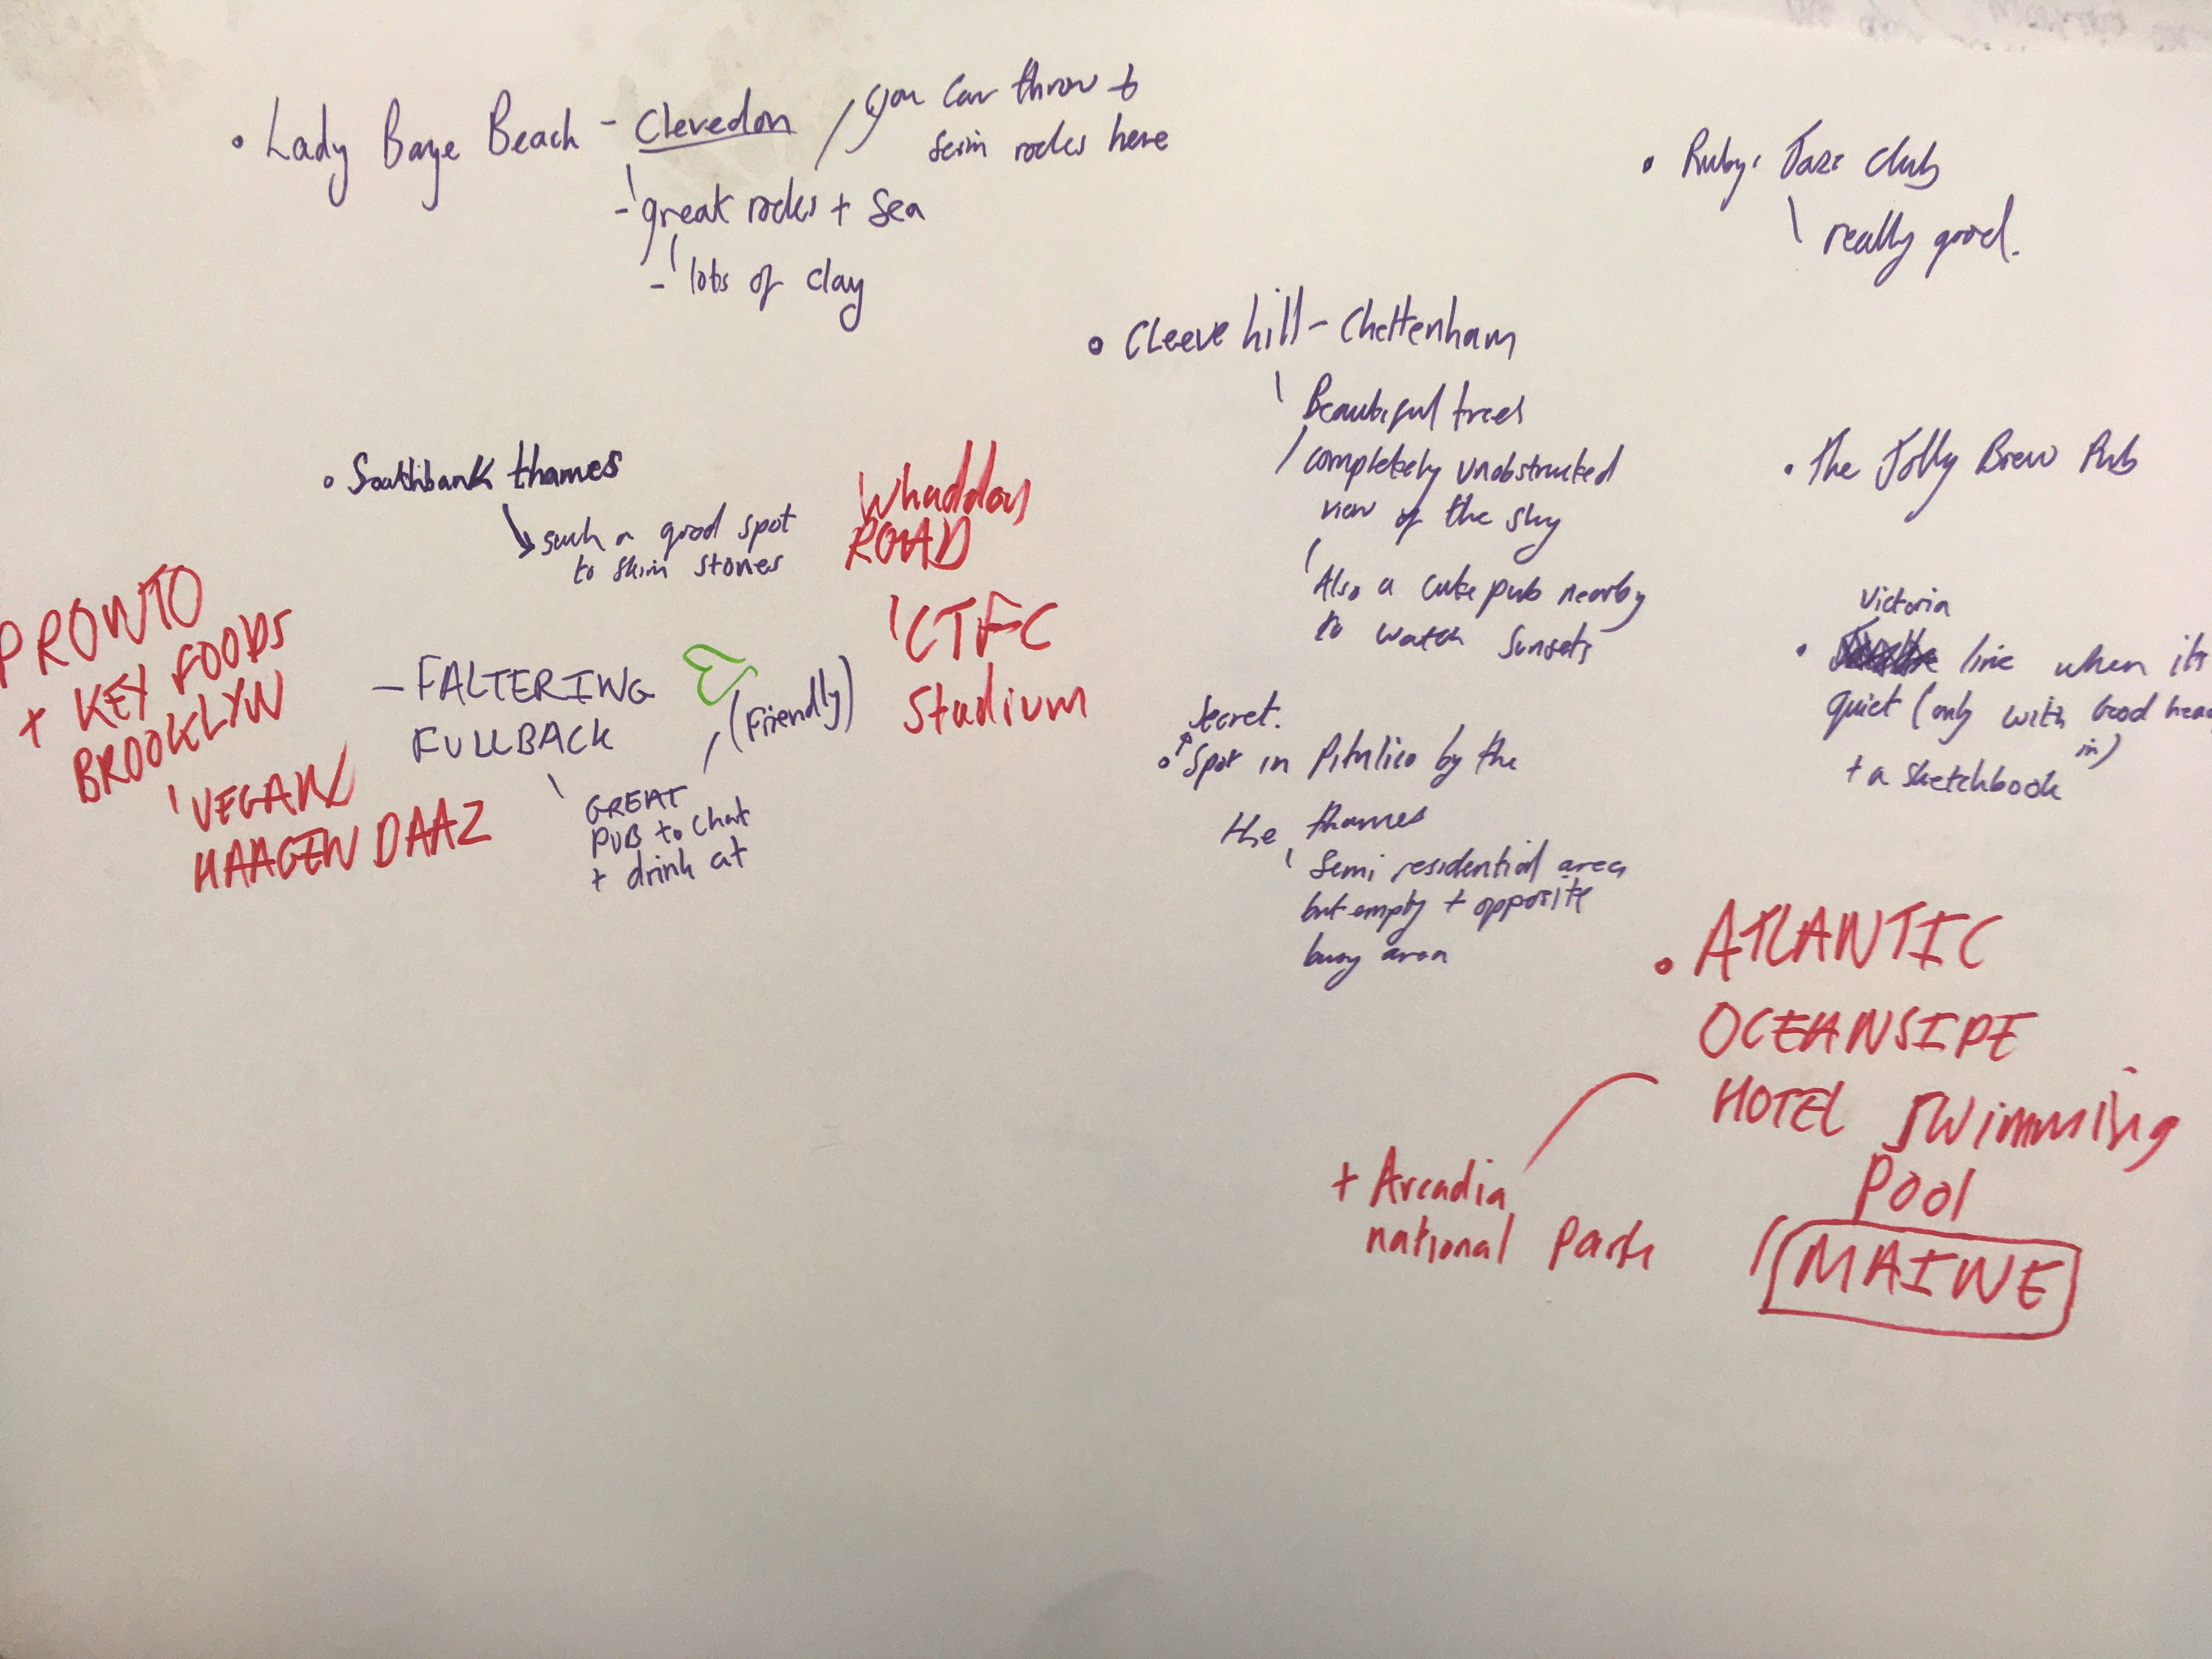 • Lady Baye Beach - Clevedon
you can throw +
scim rocks here
- great rocks + Sea
- lots of clay
• Ruby's Jazz Club
really good.
• Cleeve hill - Cheltenham
Beautiful trees
completely unobstructed
view of the sky
Also a cute pub nearby
to watch sunsets
• Southbank thames
such a good spot
to skim stones
Whaddon
ROAD
CTFC
Stadium
• The Jolly Brew Pub
PRONTO
+ KEY FOODS
BROOKLYN
VEGAN
HAAGEN DAAZ
- FALTERING
FULLBACK
(Friendly)
GREAT
PUB to chat
+ drink at
Victoria
• line when its
quiet (only with Good
in)
+ a sketchbook
Secret.
• Spot in Pimlico by the
the thames
Semi residential area
but empty + opposite
busy area
• ATLANTIC
OCEANSIDE
HOTEL Swimming
Pool
MAINE
+ Arcadia
national Park